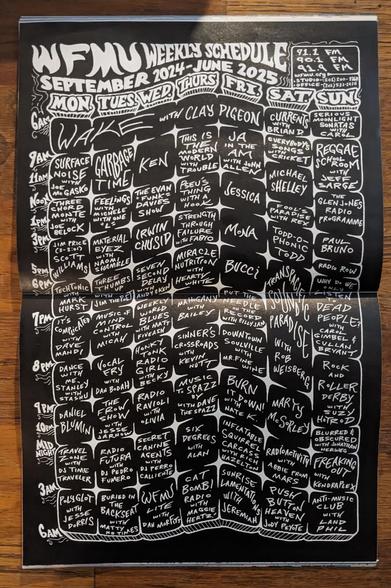 WFMU WEEKLY SCHEDULE
SEPTEMBER 2024-JUNE 2025
91.1 FM
90.1 FM
91.9 FM
WFMU.ORG
MON TUES WED THURS FRI SAT SUN
6AM
WAKE WITH CLAY PIGEON
CURRENTS WITH BRIAN D
SERIOUS MOONLIGHT SONATAS WITH CARGE
9AM
SURFACE NOISE WITH JOE MCGASKO
GARBAGE TIME
KEN
THIS IS THE MODERN WORLD WITH TROUBLE
JA IN THE AM WITH JOHN ALLEN
EVERYBODY'S SONGS WITH CRICKET
REGGAE SCHOOLROOM WITH JEFF SARGE
THREE CHORD MONTE WITH JOE BELOCK
FEELINGS WITH MICHELE WITH ONE "L"
THE EVAN "FUNK" DAVIES SHOW
THING WITH A HOOK
JESSICA
MICHAEL SHELLEY
THE GLEN JONES RADIO PROGRAMME
3PM
JIM PRICE
SCOTT WILLIAMS
MATERIAL EYEZ WITH
IRWIN CHUSID
STRENGTH THROUGH FAILURE WITH FABIO
MONA
FOOL'S PARADISE WITH REX
TODD-O-PHONIC TODD
PAUL BRUNO
TECHTONIC WITH MARK HURST
THREE THUMBS
SEVEN SECOND DELAY
MIRACLE NUTRITION WITH HEARTY WHITE
BUCCI
TRANSPACIFIC SOUND PARADISE WITH ROB WEISBERG
RADIO ROW
6PM
7PM
COMPLICATED WITH DAVE MANDL
MUSIC MIND CONTROL WITH MICAH
WITH BAILEY
LISTEN
DEAD PEOPLE WITH CAROL GIMBEL & GYLLAN BRYANT
8PM
DANCE WITH ME, STANLEY WITH STASHU
VOCAL FRY WITH DAN BODAH
HONKY TONK RADIO GIRL WITH BECKY
SINNER'S CROSSROADS WITH KEVIN NUTT
DOWNTOWN SOULVILLE WITH MR. FINE WINE
ROCK AND ROLLER DERBY WITH SUZY HOTROD
9PM
DANIEL BLUMIN
THE FROW SHOW WITH JESSE JARNOW
RADIO RAVIOLI WITH OLIVIA
MUSIC TO SPAZZ WITH DAVE THE SPAZZ
BURN IT DOWN! WITH NATE K
MARTY MCSORLEY
10PM
BLURRED & OBSCURED
MIDNIGHT
TRAVEL ZONE WITH DJ TIME TRAVELER
RADIO FUTURA WITH DJ PEDRO FUMERO
SECRET CANINE AGENTS WITH DJ PERRO CALIENTE
SIX DEGREES WITH ALAN
INFLATABLE SQUIRREL CARCASS WITH
RADIOACTIVITY WITH ABBIE FROM MARS
FREAKING OUT WITH KENDRAPLEX
3AM
POLYGLOT WITH JESSE DORRIS
BURIED IN THE BACKSEAT WITH MATTY NO TIMES
WFMU LITE WITH DAN MORFOTT
CAT BOMB! RADIO WITH MAGGIE HERTZ
SUNRISE LAMENTATIONS WITH JEREMIAH
PUSH BUTTON HEAVEN WITH JOY PEPITE
ANTI-MUSIC CLUB WITH LAND PHIL
6AM